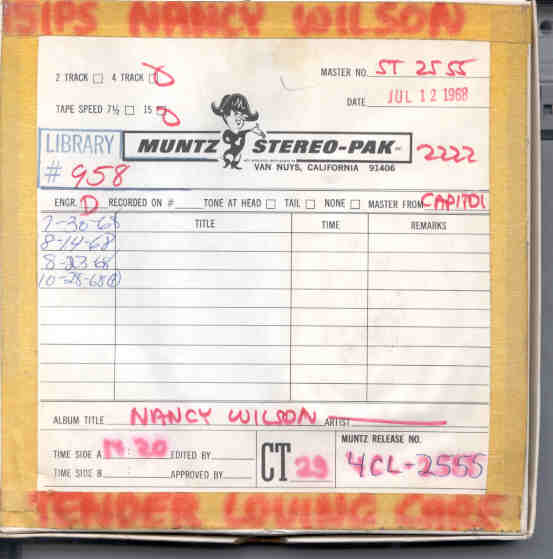 SIPS NANCY WILSON
2 TRACK 4 TRACK
MASTER NO. ST 2555
TAPE SPEED 7½ 15
DATE JUL 12 1968
LIBRARY
# 958
MUNTZ STEREO-PAK INC.
2222
VAN NUYS, CALIFORNIA 91406
ENGR. D RECORDED ON # TONE AT HEAD TAIL NONE MASTER FROM CAPITOL
TITLE TIME REMARKS
7-30-68
8-14-68
8-23-68
10-28-68
ALBUM TITLE NANCY WILSON ARTIST
TIME SIDE A 14:20 EDITED BY
TIME SIDE B APPROVED BY
CT 29
MUNTZ RELEASE NO.
4CL-2555
TENDER LOVING CARE